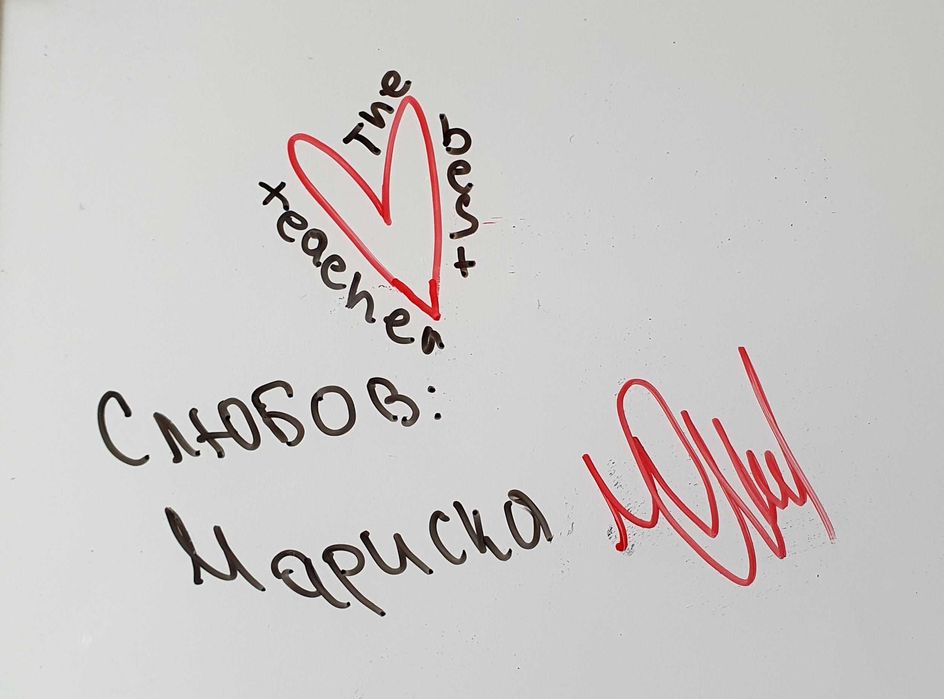 The best teacher
С любов:
Мариска